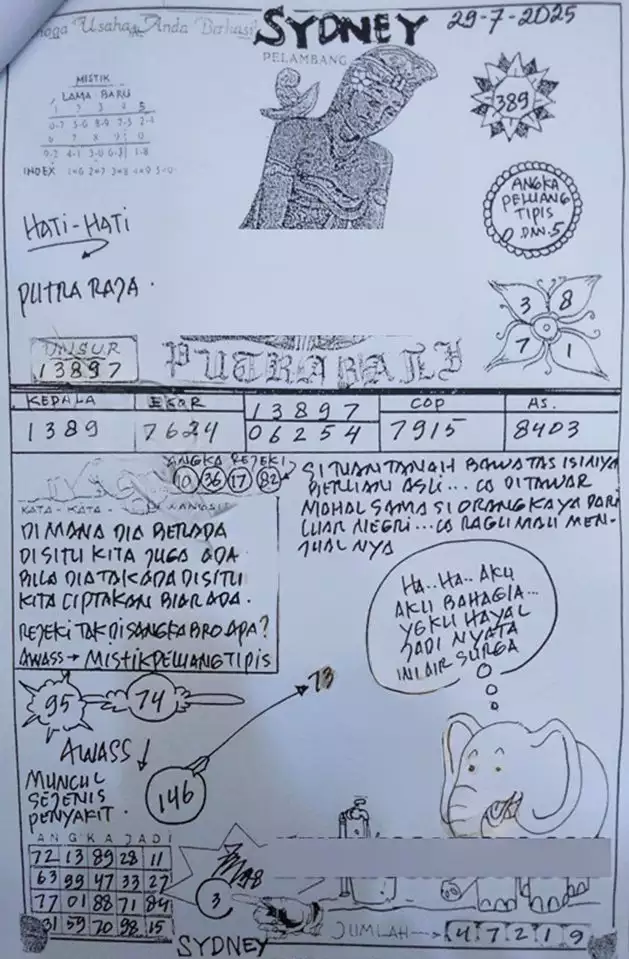 Usaha Anda Berhasil
SYDNEY
29-7-2025
PELAMBANG
MISTIK
LAMA BARU
1 2 3 4 5
0-7 5-0 8-9 2-5 2-4
6 7 8 9 0
9-2 4-1 3-0 6-3 1-8
INDEX 1=6 2=7 3=8 4=9 5=0
389
ANGKA
PELUANG
TIPIS
0 DAN 5
HATI-HATI
PUTRA RAJA.
3 8
7 1
UNSUR
13897
PUTRA BALI
KEPALA EKOR 13897 COP AS.
1389 7624 06254 7915 8403
ANGKA REJEKI
10 36 17 82
KATA - KATA
DI MANA DIA BERADA
DISITU KITA JUGA ADA
BILA DIA TAK ADA DISITU
KITA CIPTAKAN BIAR ADA.
REJEKI TAK DISANGKA BRO APA?
AWASS → MISTIK PELUANG TIPIS
SI TUAN TANAH BAWA TAS ISINYA
BERLIAN ASLI... LO DITAWAR
MOHAL SAMA SI ORANG KAYA DARI
LUAR NEGRI... LO RAGU MAU MEN-
JUALNYA
HA..HA..AKU
AKU BAHAGIA...
YGKU HAYAL
JADI NYATA
INI AIR SURGA
95 74
73
AWASS
146
MUNCUL
SEJENIS
PENYAKIT.
ANGKA JADI
72 13 89 28 11
63 99 47 33 27
77 01 88 71 84
31 59 70 98 15
3
SYDNEY
JUMLAH → 4 7 2 1 9